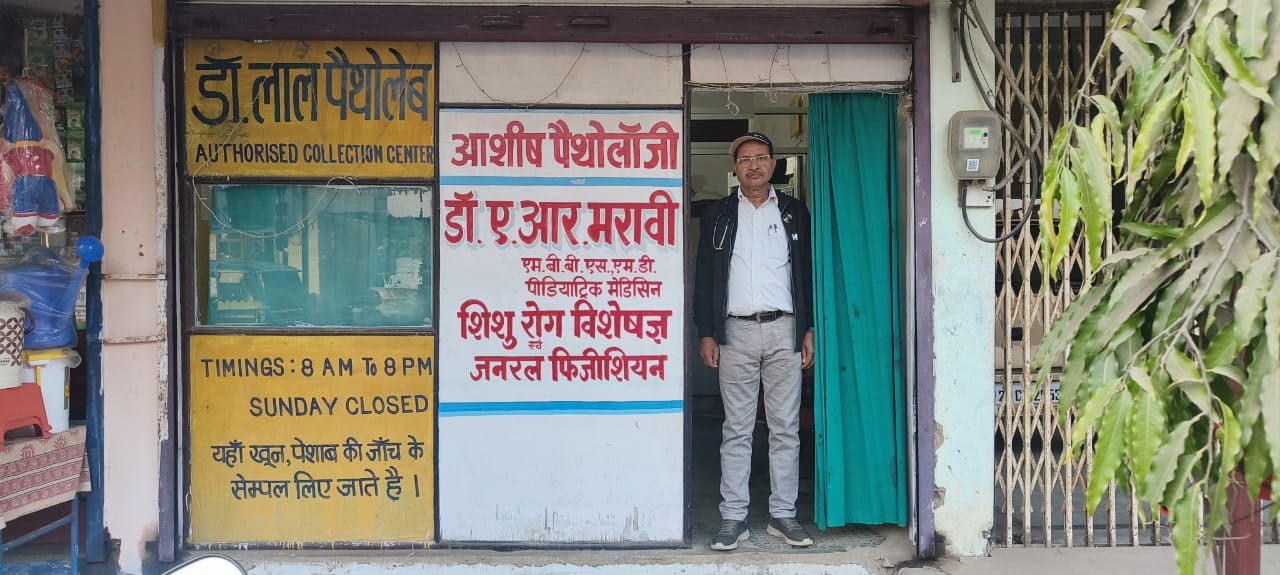 डॉ. लाल पैथोलेब
AUTHORISED COLLECTION CENTER
TIMINGS : 8 AM To 8 PM
SUNDAY CLOSED
यहाँ खून, पेशाब की जाँच के
सेम्पल लिए जाते है ।
आशीष पैथोलॉजी
डॉ. ए. आर. मरावी
एम. बी. बी. एस., एम. डी.
पीडियाट्रिक मेडिसिन
शिशु रोग विशेषज्ञ
एवं
जनरल फिजीशियन